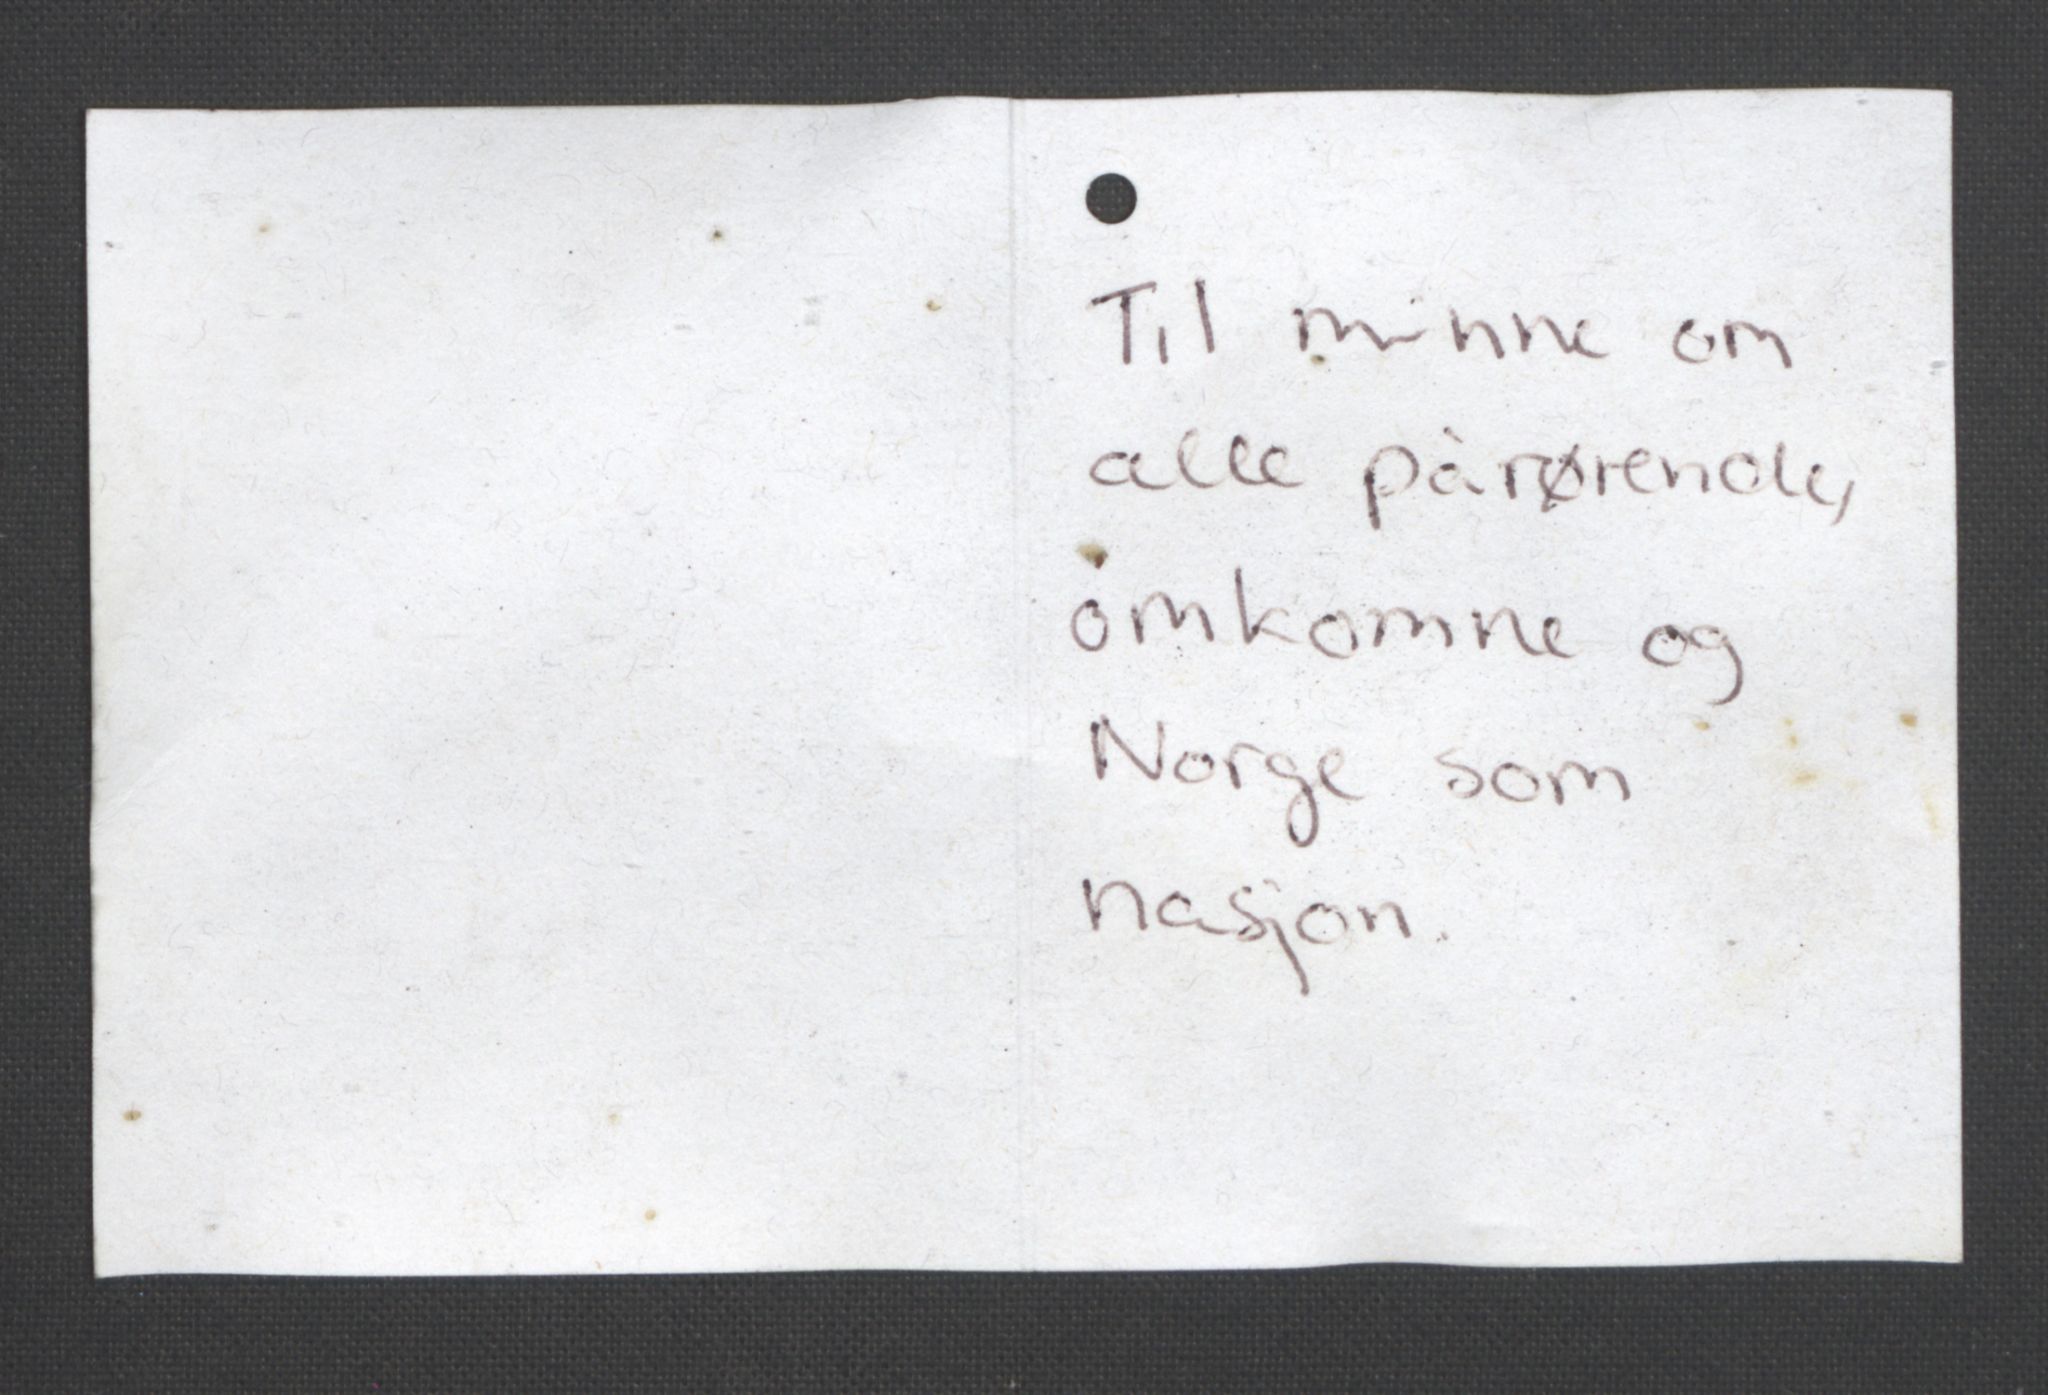 Til minne om
alle pårørende,
omkomne og
Norge som
nasjon.